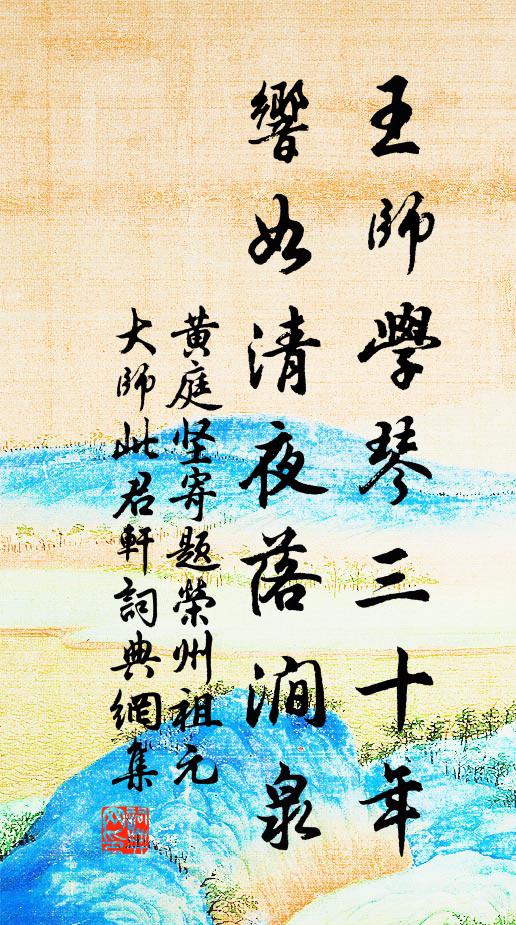 王師學琴三十年
響如清夜落澗泉
黃庭坚寄題榮州祖元
大師此君軒詞典網集